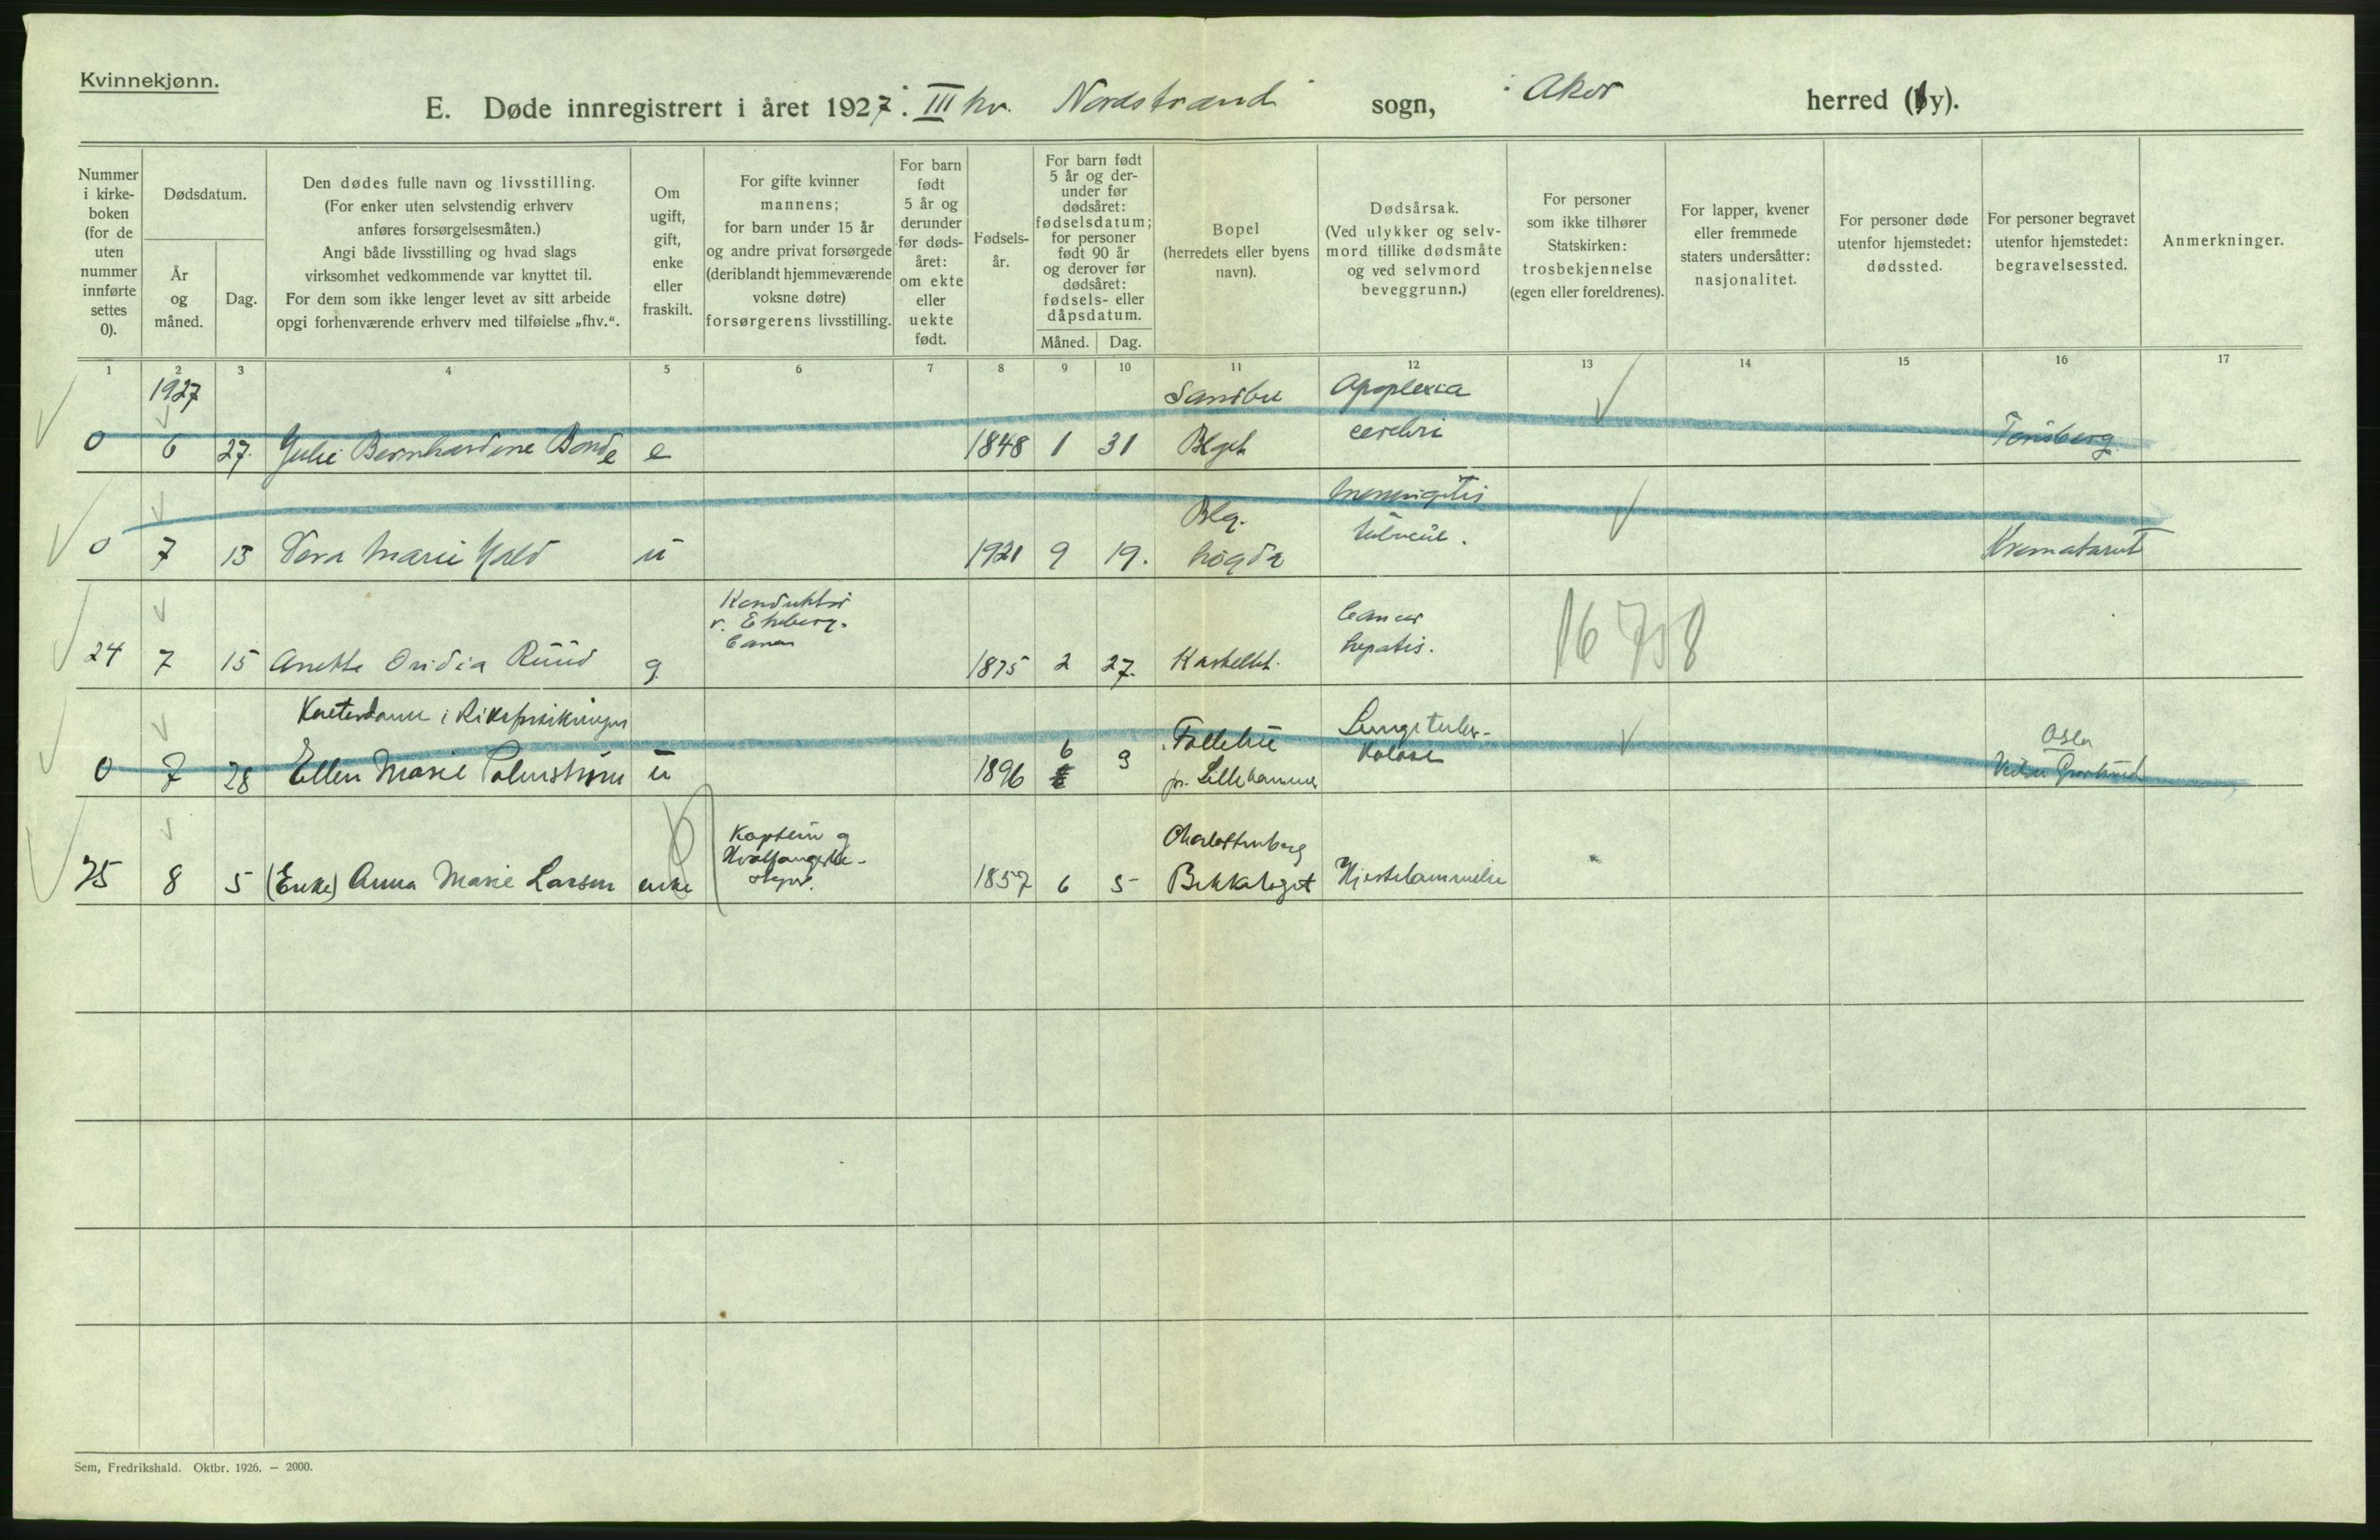 Kvinnekjønn.
E. Døde innregistrert i året 1927. III kv. Nordstrand sogn, i Aker herred (by).
Nummer i kirke- boken (for de uten nummer innførte settes 0).
Dødsdatum.
År og måned.
Dag.
Den dødes fulle navn og livsstilling.
(For enker uten selvstendig erhverv
anføres forsørgelsesmåten.)
Angi både livsstilling og hvad slags
virksomhet vedkommende var knyttet til.
For dem som ikke lenger levet av sitt arbeide
opgi forhenværende erhverv med tilføielse „fhv.“.
Om ugift, gift, enke eller fraskilt.
For gifte kvinner
mannens;
for barn under 15 år
og andre privat forsørgede
(deriblandt hjemmeværende
voksne døtre)
forsørgerens livsstilling.
For barn
født
5 år og
derunder
før døds-
året:
om ekte
eller
uekte
født.
Fødsels-
år.
For barn født
5 år og der-
under før
dødsåret:
fødselsdatum;
for personer
født 90 år
og derover før
dødsåret:
fødsels- eller
dåpsdatum.
Måned. Dag.
Bopel
(herredets eller byens
navn).
Dødsårsak.
(Ved ulykker og selv-
mord tillike dødsmåte
og ved selvmord
beveggrunn.)
For personer
som ikke tilhører
Statskirken:
trosbekjennelse
(egen eller foreldrenes).
For lapper, kvener
eller fremmede
staters undersåtter:
nasjonalitet.
For personer døde
utenfor hjemstedet:
dødssted.
For personer begravet
utenfor hjemstedet:
begravelsessted.
Anmerkninger.
1 2 3 4 5 6 7 8 9 10 11 12 13 14 15 16 17
1927 Sandbu Apoplexia
0 6 27. Julie Bernhardine Bonde e 1848 1 31 Blgch cerebri Tønsberg
Blg. meningitis
0 7 13 Vera Marie u 1921 9 19. høgda tubercul. Krematoriet
Konduktør
v. Ekeberg- Cancer
banen
24 7 15 Anette Ovidia Ruud g. 1875 2 27. Kastellet. hepatis. 16 758
i Riksforsikringen 6 Follebu Lungetuber- Oslo
0 7 28 Ellen Marie Palmstrøm u 1896 9 pr. Lillehammer kulose
Kaptein og Charlottenberg
Hvalfanger
25 8 5 (Enke) Anna Marie Larsen enke 1857 6 5 Bekkelaget Hjertelammelse
Sem, Fredrikshald. Oktbr. 1926. — 2000.